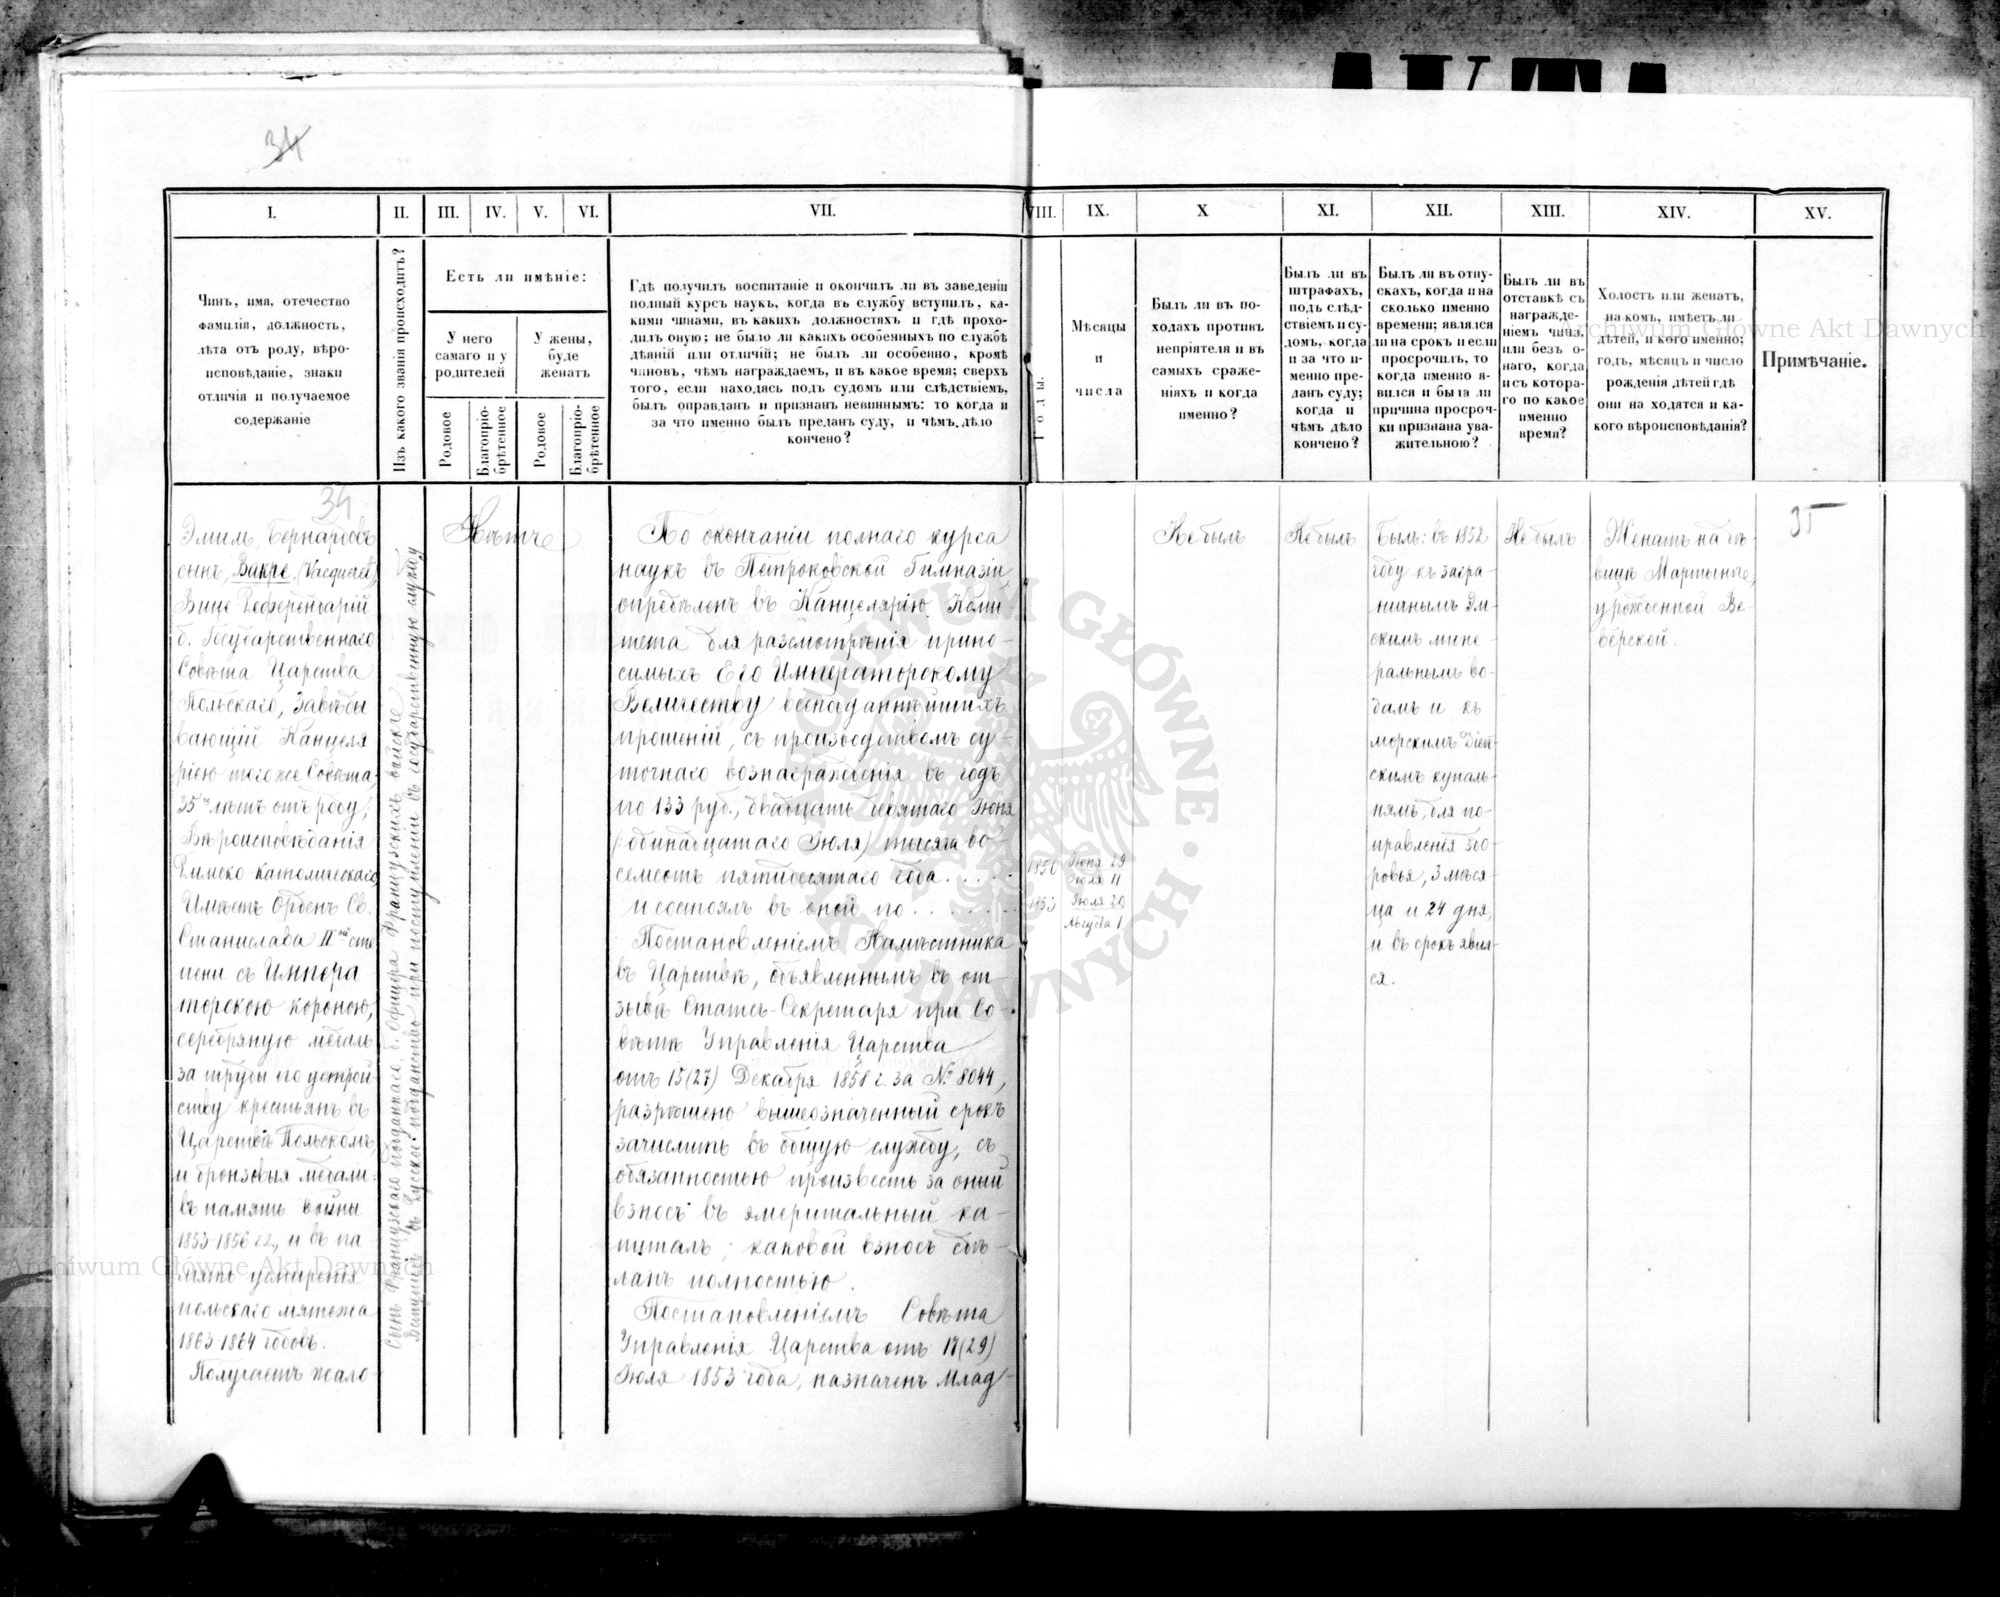 34
I.
II.
III.
IV.
V.
VI.
VII.
VIII.
IX.
X
XI.
XII.
XIII.
XIV.
XV.
Чинъ, имя, отечество
фамилія, должность,
лѣта отъ роду, вѣро-
исповѣданіе, знаки
отличія и получаемое
содержаніе
Изъ какого званія происходитъ?
Есть ли имѣніе:
У него
самаго и у
родителей
У жены,
буде
женатъ
Родовое
Благопріо-
брѣтенное
Родовое
Благопріо-
брѣтенное
Гдѣ получилъ воспитаніе и окончилъ ли въ заведеніи
полный курсъ наукъ, когда въ службу вступилъ, ка-
кими чинами, въ какихъ должностяхъ и гдѣ прохо-
дилъ оную; не было ли какихъ особенныхъ по службѣ
дѣяній или отличій; не былъ ли особенно, кромѣ
чиновъ, чѣмъ награждаемъ, и въ какое время; сверхъ
того, если находясь подъ судомъ или слѣдствіемъ,
былъ оправданъ и признанъ невиннымъ: то когда и
за что именно былъ преданъ суду, и чѣмъ дѣло
кончено?
Годы.
Мѣсяцы
и
числа
Былъ ли въ по-
ходахъ противъ
непріятеля и въ
самыхъ сраже-
ніяхъ и когда
именно?
Былъ ли въ
штрафахъ,
подъ слѣд-
ствіемъ и су-
домъ, когда
и за что и-
менно пре-
данъ суду;
когда и
чѣмъ дѣло
кончено?
Былъ ли въ отпу-
скахъ, когда и на
сколько именно
времени; являлся
ли на срокъ и если
просрочилъ, то
когда именно я-
вился и была ли
причина просроч-
ки признана ува-
жительною?
Былъ ли въ
отставкѣ съ
награжде-
ніемъ чина,
или безъ о-
наго, когда
и съ котора-
го по какое
именно
время?
Холостъ или женатъ,
на комъ, имѣетъ ли
дѣтей, и кого именно;
годъ, мѣсяцъ и число
рожденія дѣтей гдѣ
они на ходятся и ка-
кого вѣроисповѣданія?
Примѣчаніе.
34
Эмилъ, Бернардовъ
сынъ, Вакре, (Vacqueret)
Вице Референдарій
б. Государственнаго
Совѣта Царства
Польскаго, Завѣды
вающій Канцеля
ріею тогоже Совѣта,
35 лѣтъ отъ роду,
Вѣроисповѣданія
Римско-католическаго
Имѣетъ Орденъ Св.
Станислава II ой сте
пени съ Импера
торскою короною,
серебряную медаль
за труды по устрой-
ству крестьянъ въ
Царствѣ Польскомъ,
и бронзовыя медали:
въ память войны
1853-1856 гг., и въ па-
мять усмиренія
польскаго мятежа
1863-1864 годовъ.
Получаетъ жало-
Сынъ Французскаго подданнаго, б. Офицера Французскихъ войскъ
Вступилъ въ Русское подданство при поступленіи въ государственную службу
Нѣтъ
По окончаніи полнаго курса
наукъ въ Петроковской Гимназіи,
опредѣленъ въ Канцелярію Коми-
тета для разсмотрѣнія прино-
симыхъ Его Императорскому
Величеству всеподаннѣйшихъ
прошеній, съ производствомъ су-
точнаго вознагражденія въ годъ
по 133 руб., двадцать девятаго Іюня
(одинадцатаго Іюля) тысяча во-
семьсотъ пятидесятаго года . . . . .
и состоялъ въ оной по . . . . . . .
Постановленіемъ Намѣстника
въ Царствѣ, объявленнымъ въ от-
зывѣ Статсъ-Секретаря при Со-
вѣтѣ Управленія Царства
отъ 15(27) Декабря 1858 г. за № 8044,
разрѣшено вышеозначенный срокъ
зачислить въ общую службу, съ
обязанностью произвесть за оный
взносъ въ эмеритальный ка-
питалъ; каковой взносъ сдѣ-
ланъ полностью.
Постановленіемъ Совѣта
Управленія Царства отъ 17(29)
Іюля 1853 года, назначенъ Млад-
1850
Іюня 29
Іюля 11
1853
Іюля 20
Августа 1
Небылъ
Небылъ
Былъ: въ 1852
году къ загра-
ничнымъ Эм-
скимъ мине-
ральнымъ во-
дамъ и къ
морскимъ Діеп-
скимъ купаль-
нямъ, для по-
правленія здо-
ровья, 3 мѣся-
ца и 24 дня,
и въ срокъ явил-
ся.
Небылъ
Женатъ на дѣ-
вицѣ Мартынѣ,
урожденной Ве-
верской.
35
Archiwum Główne Akt Dawnych
Archiwum Główne Akt Dawnych
ARCHIWUM GŁÓWNE AKT DAWNYCH